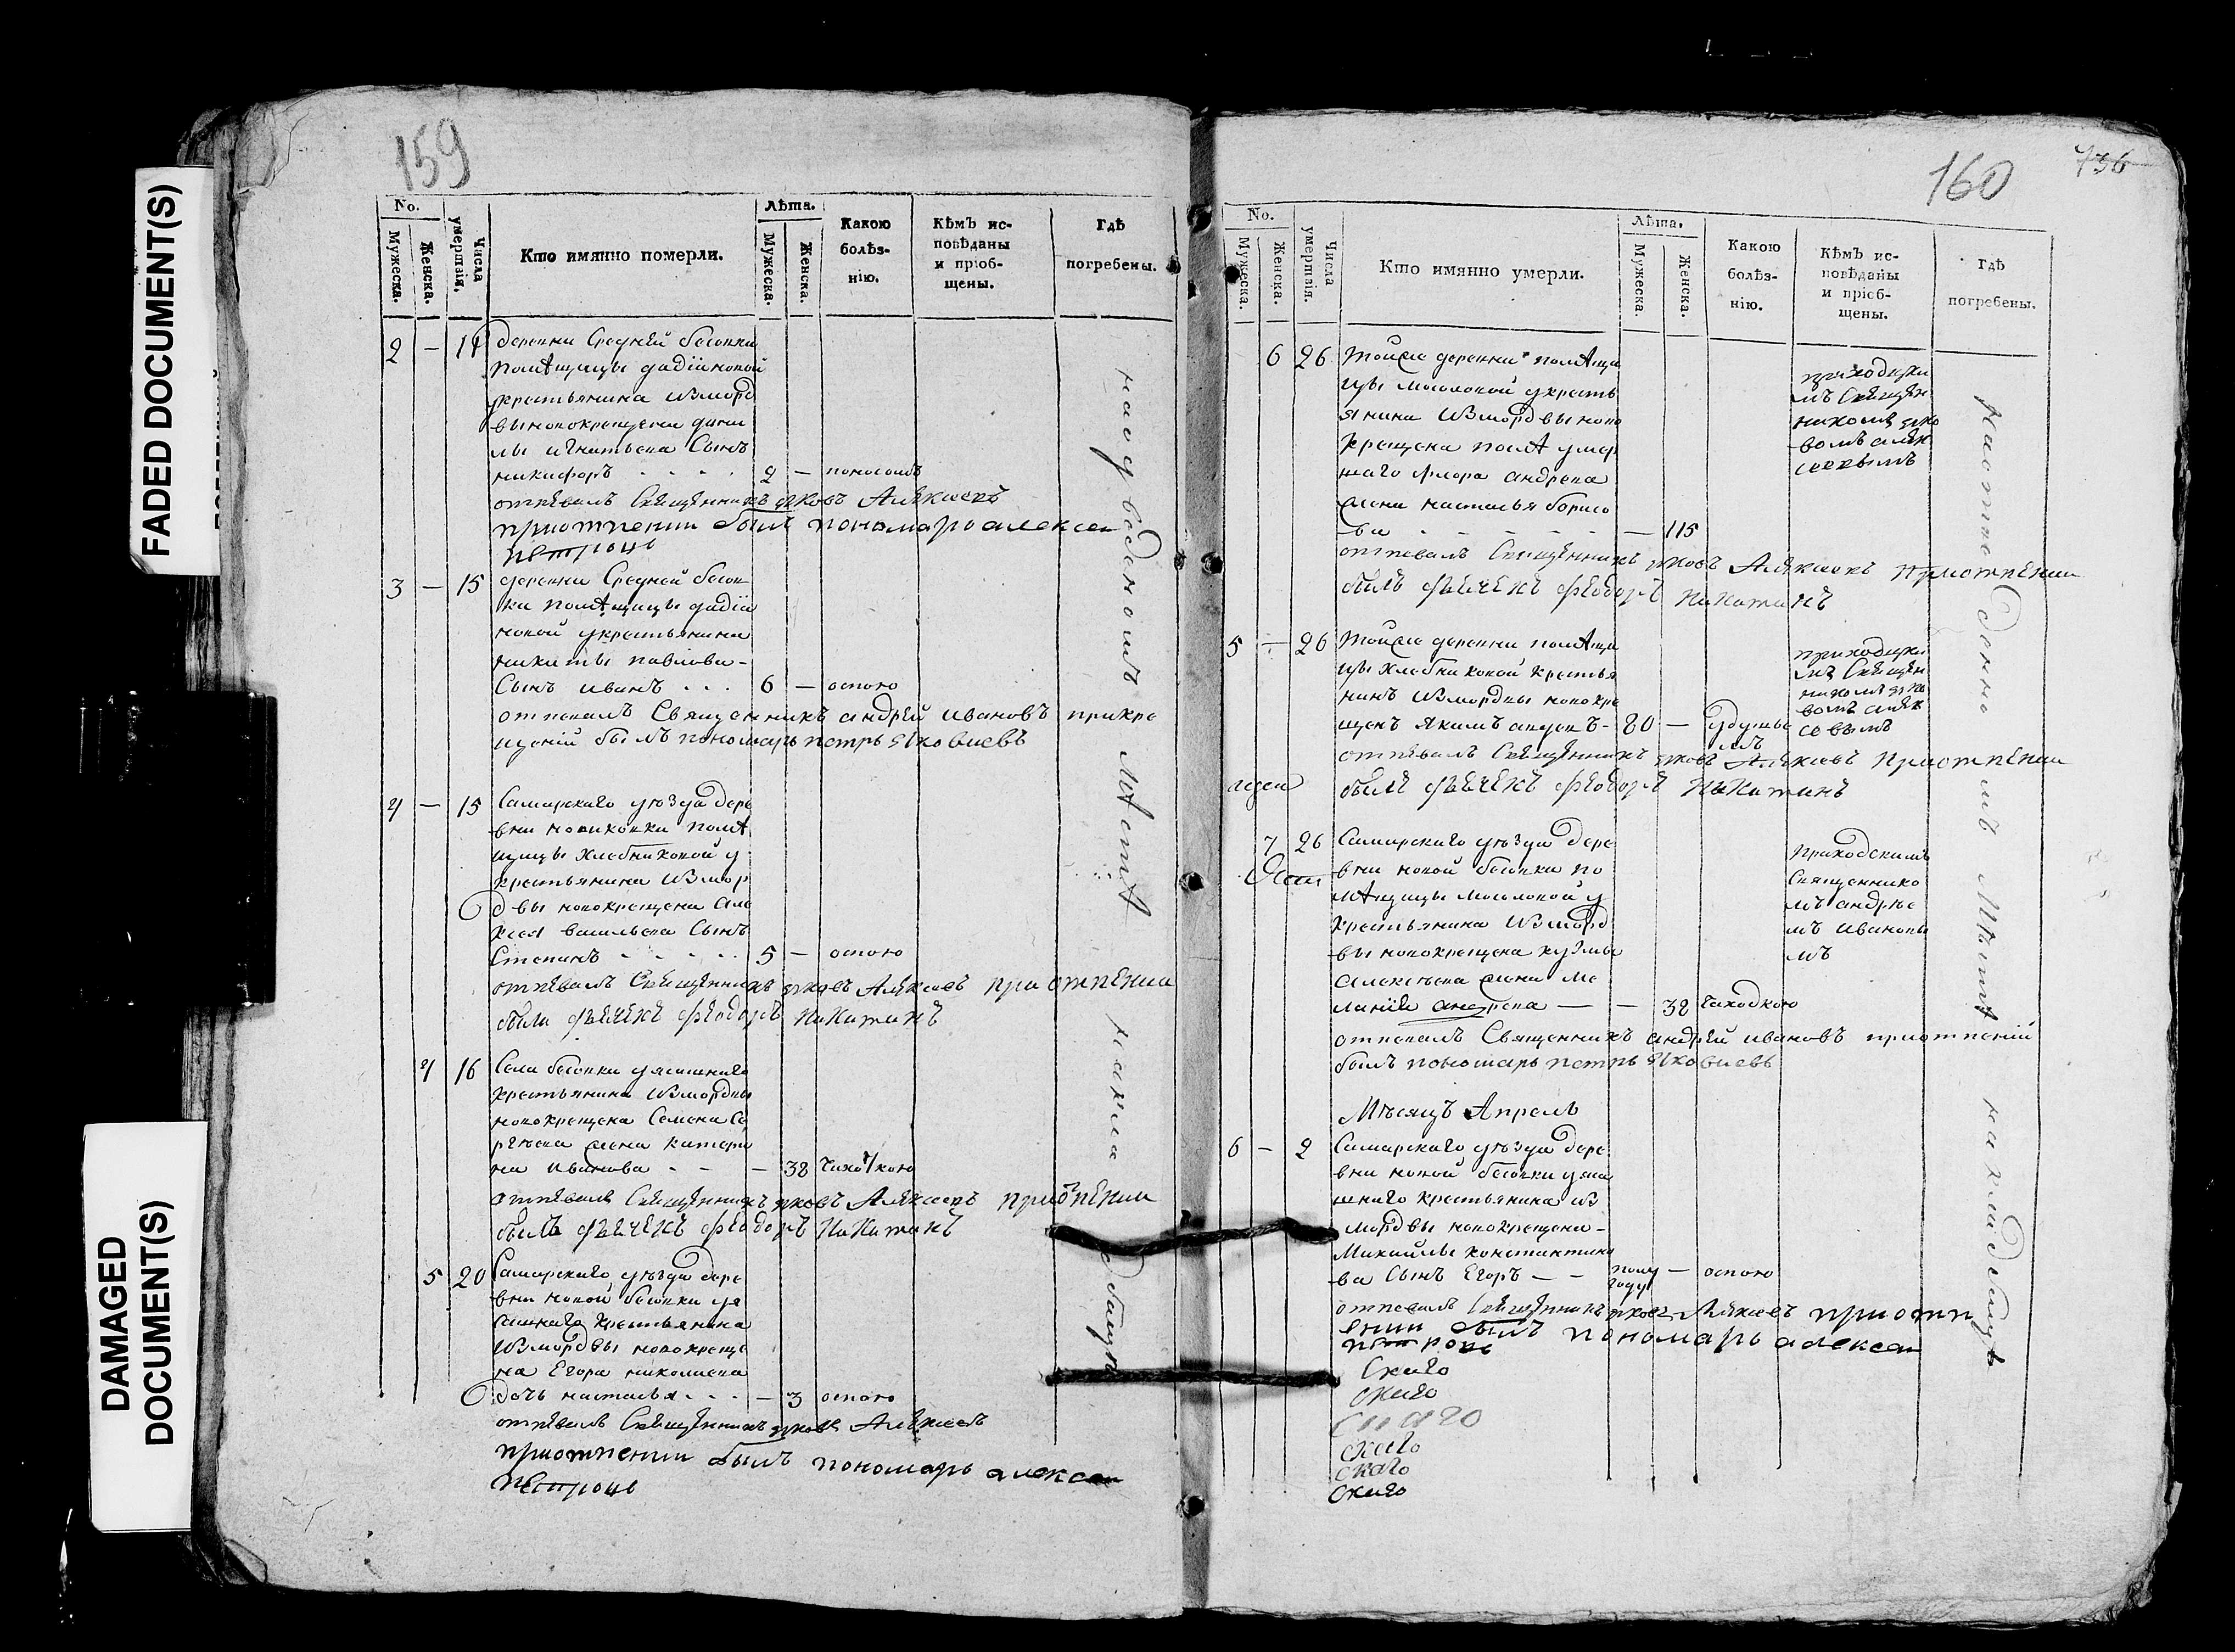 FADED DOCUMENT(S)
DAMAGED
DOCUMENT(S)
159
No.
Мужеска.
Женска.
Числа
умершія,
Кто имянно померли.
Лѣта.
Мужеска.
Женска.
Какою
болѣз-
нію.
Кѣмъ ис-
повѣданы
и пріоб-
щены.
Гдѣ
погребены.
2 — 14 деревни Средней бесовки
помѣщицы
крестьянина изморд
вы новокрещена дани
лы игнатьева Сынъ
никифоръ 2 — поносомъ
отпѣвалъ Священникъ яковъ Алѣксеевъ
приотпении былъ пономарь алексеи
петровъ
3 — 15 деревни Средней бесов
ки помѣщицы
новой укрестьянина
никиты павлова-
Сынъ иванъ . . . 6 — оспою
отпевалъ Священникъ андрей ивановъ прикре
щений былъ пономарь петръ яковлевъ
4 — 15 Самарскаго уѣзда дере
вни новиковки помѣ
щицы хлебниковой у
крестьянина измор
двы новокрещена але
ксея васильева Сынъ
Степанъ 5 — оспою
отпѣвалъ Священникъ яковъ Алѣксеевъ при отпении
были дьячекъ феодоръ Никитинъ
4 16 Села бесовки уясашнаго
крестьянина измордвы
новокрещена Семена Се
ргѣева жена катери
на иванова - - — 38 чихоткою
отпѣвалъ Священникъ яковъ Алѣксеевъ приотпении
былъ дьячекъ феодоръ Никитинъ
5 20 Самарскаго уѣзда дере
вни новой бесовки уя
сашнаго крестьянина
измордвы новокреще
на Егора николаева
дочь настасья . . . — 3 оспою
отпѣвалъ Священникъ яковъ Алѣксеевъ
приотпении былъ пономарь алексеи
петровъ
наотведенномъ Мѣстѣ накладбище
160
736
No.
Мужеска.
Женска.
Числа
умершія.
Кто имянно умерли.
Лѣта.
Мужеска.
Женска.
Какою
болѣз-
нію.
Кѣмъ ис-
повѣданы
и пріоб-
щены.
Гдѣ
погребены.
6 26 тойже деревни помѣщи
цы мосоловой укресть
янина измордвы ново
крещена послѣ умер
шаго флора андреева
жена настасья борисо
ва — — 115
приходски
мъ Священ
никомъ яко
вомъ алѣк
сеевымъ
отпевалъ Священникъ яковъ Алѣксеевъ приотпении
былъ дьячекъ феодоръ Никитинъ
5 — 26 тойже деревни помѣщи
цы хлебниковой крестья
нинъ измордвы новокре
щенъ якимъ - 80 — удушье
мъ
приходски
мъ Священ
никомъ яко
вомъ алѣк
сеевымъ
отпѣвалъ Священникъ яковъ Алѣксеевъ приотпении
былъ дьячекъ феодоръ Никитинъ
7 26 Самарскаго уѣзда дере
вни новой бесовки по
мѣщицы мосоловой у
крестьянина изморд
вы новокрещена кузмы
алексѣева жена ме
ланія андреева — — 32 чахоткою
приходскимъ
Священнико
мъ андрѣе
мъ ивановы
мъ
отпевалъ Священникъ андрей ивановъ приотпений
былъ пономарь петръ яковлевъ
Мѣсяцъ Апрель
6 — 2 Самарскаго уѣзда дере
вни новой бесовки уяса
шнаго крестьянина из
мордвы новокрещена-
Михайлы константино
ва Сынъ Егоръ — - полу
году — оспою
отпевалъ Священникъ яковъ Алѣксеевъ приотп
ении былъ пономарь алексеи
петровъ
Скаго
скаго
скаго
скаго
скаго
наотведенномъ Мѣстѣ накладбище